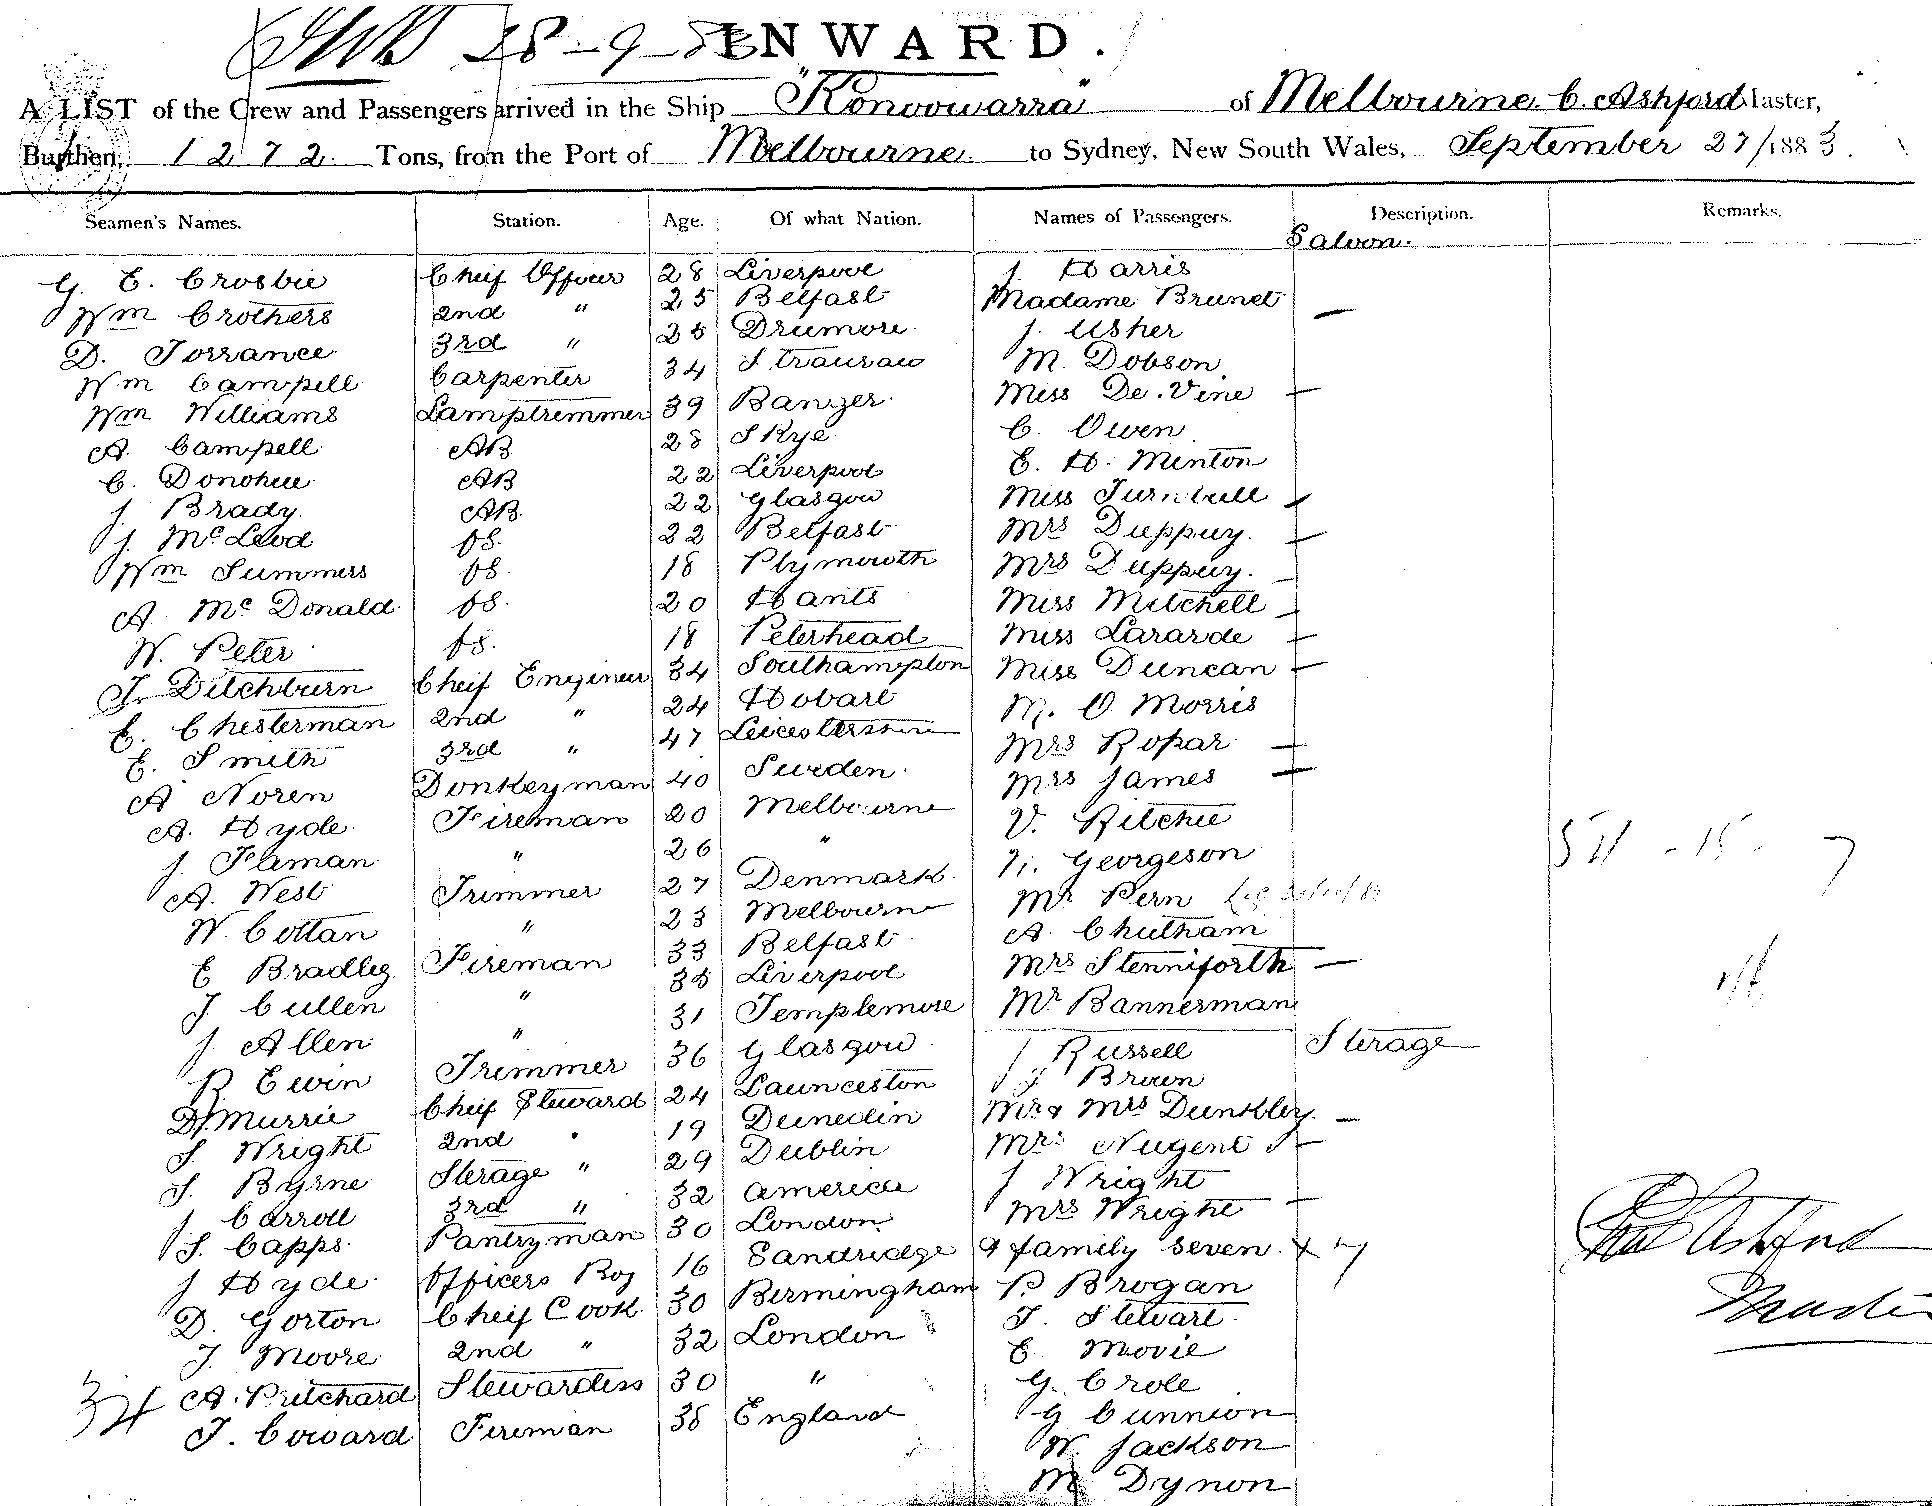 28-9-83 INWARD.
A LIST of the Crew and Passengers arrived in the Ship "Konoowarra" of Melbourne. C. Ashford Master,
Burthen, 1272 Tons, from the Port of Melbourne to Sydney, New South Wales, September 27/1883.
Seamen's Names. Station. Age. Of what Nation. Names of Passengers. Description. Remarks.
Saloon.
G. E. Crosbie Cheif Officer 28 Liverpool J. Harris
Wm Crothers 2nd " 25 Belfast Madame Brunet —
D. Torrance 3rd " 25 Drumore. J. Usher
Wm Campell Carpenter 34 M. Dobson
Wm Williams Lamptremmer 39 Banger. Miss De. Vine —
A. Campell AB 28 Skye C. Owen
C. Donohue AB 22 Liverpool E. H. Minton
J. Brady AB 22 Glasgow Miss Turnbull —
J. McLeod OS. 22 Belfast Mrs Duppuy. —
Wm Summers OS. 18 Plymouth Mrs Duppuy. —
A. McDonald OS. 20 Hants Miss Mitchell —
W. Peter OS. 18 Peterhead Miss Lararde —
J. Ditchburn Cheif Engineer 34 Southampton Miss Duncan —
E. Chesterman 2nd " 24 Hobart M. O. Morris
E. Smith 3rd " 47 Leicestershire Mrs Ropar —
A Noren Donkeyman 40 Sweden. Mrs James —
A. Hyde Fireman 20 Melbourne V. Ritchie
J. Flaman " 26 " N. Georgeson
A. West Trimmer 27 Denmark. Mr Pern
W. Cottan " 23 Melbourne A. Chutham
E Bradley Fireman 33 Belfast Mrs Stenniforth —
J Cullen " 38 Liverpool Mr Bannerman
J. Allen " 31 Templemore J Russell Sterage
R Ewin Trimmer 36 Glasgow J Brown
D. Murrie Cheif Steward 24 Launceston Mr & Mrs Dunkley. —
S. Wright 2nd " 19 Dunedin Mrs Nugent —
S. Byrne Sterage " 29 Dublin J Wright
J Carroll 3rd " 32 America Mrs Wright —
S. Capps. Pantryman 30 London & family seven. 7
J Hyde Officers Boy 16 Sandridge P. Brogan
D. Gorton Cheif Cook 30 Birmingham J. Stewart.
J. Moore 2nd " 32 London E Movie
A. Pritchard Stewardess 30 " G. Crole
34
J. Coward Fireman 38 England G Cunnion
W. Jackson
M Dynon
Ashford
Master